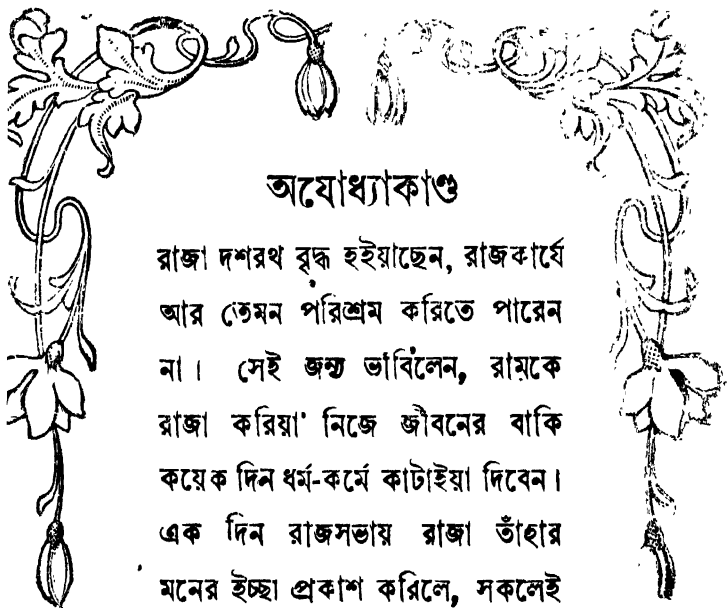 অযোধ্যাকাণ্ড
রাজা দশরথ বৃদ্ধ হইয়াছেন, রাজকার্যে
আর তেমন পরিশ্রম করিতে পারেন
না। সেই জন্য ভাবিলেন, রামকে
রাজা করিয়া নিজে জীবনের বাকি
কয়েক দিন ধর্ম-কর্মে কাটাইয়া দিবেন।
এক দিন রাজসভায় রাজা তাঁহার
মনের ইচ্ছা প্রকাশ করিলে, সকলেই